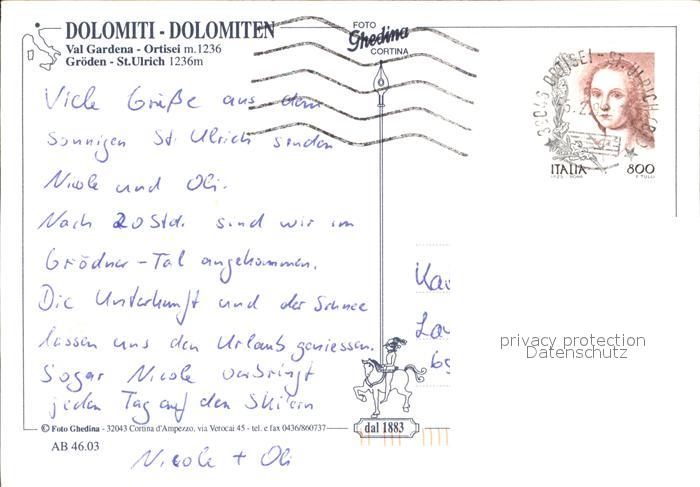 DOLOMITI - DOLOMITEN
Val Gardena - Ortisei m.1236
Gröden - St.Ulrich 1236m
FOTO
Ghedina
CORTINA
Viele Grüße aus dem
sonnigen St. Ulrich senden
Nicole und Oli.
Nach 20 Std. sind wir im
Grödner-Tal angekommen.
Die Unterkunft und der Schnee
lassen uns den Urlaub geniessen.
Sogar Nicole verbringt
jeden Tag auf den Skiern
Nicole + Oli
© Foto Ghedina - 32043 Cortina d'Ampezzo, via Verocai 45 - tel. e fax 0436/860737
AB 46.03
dal 1883
ORTISEI - ST. ULRICH
ITALIA 800
privacy protection
Datenschutz